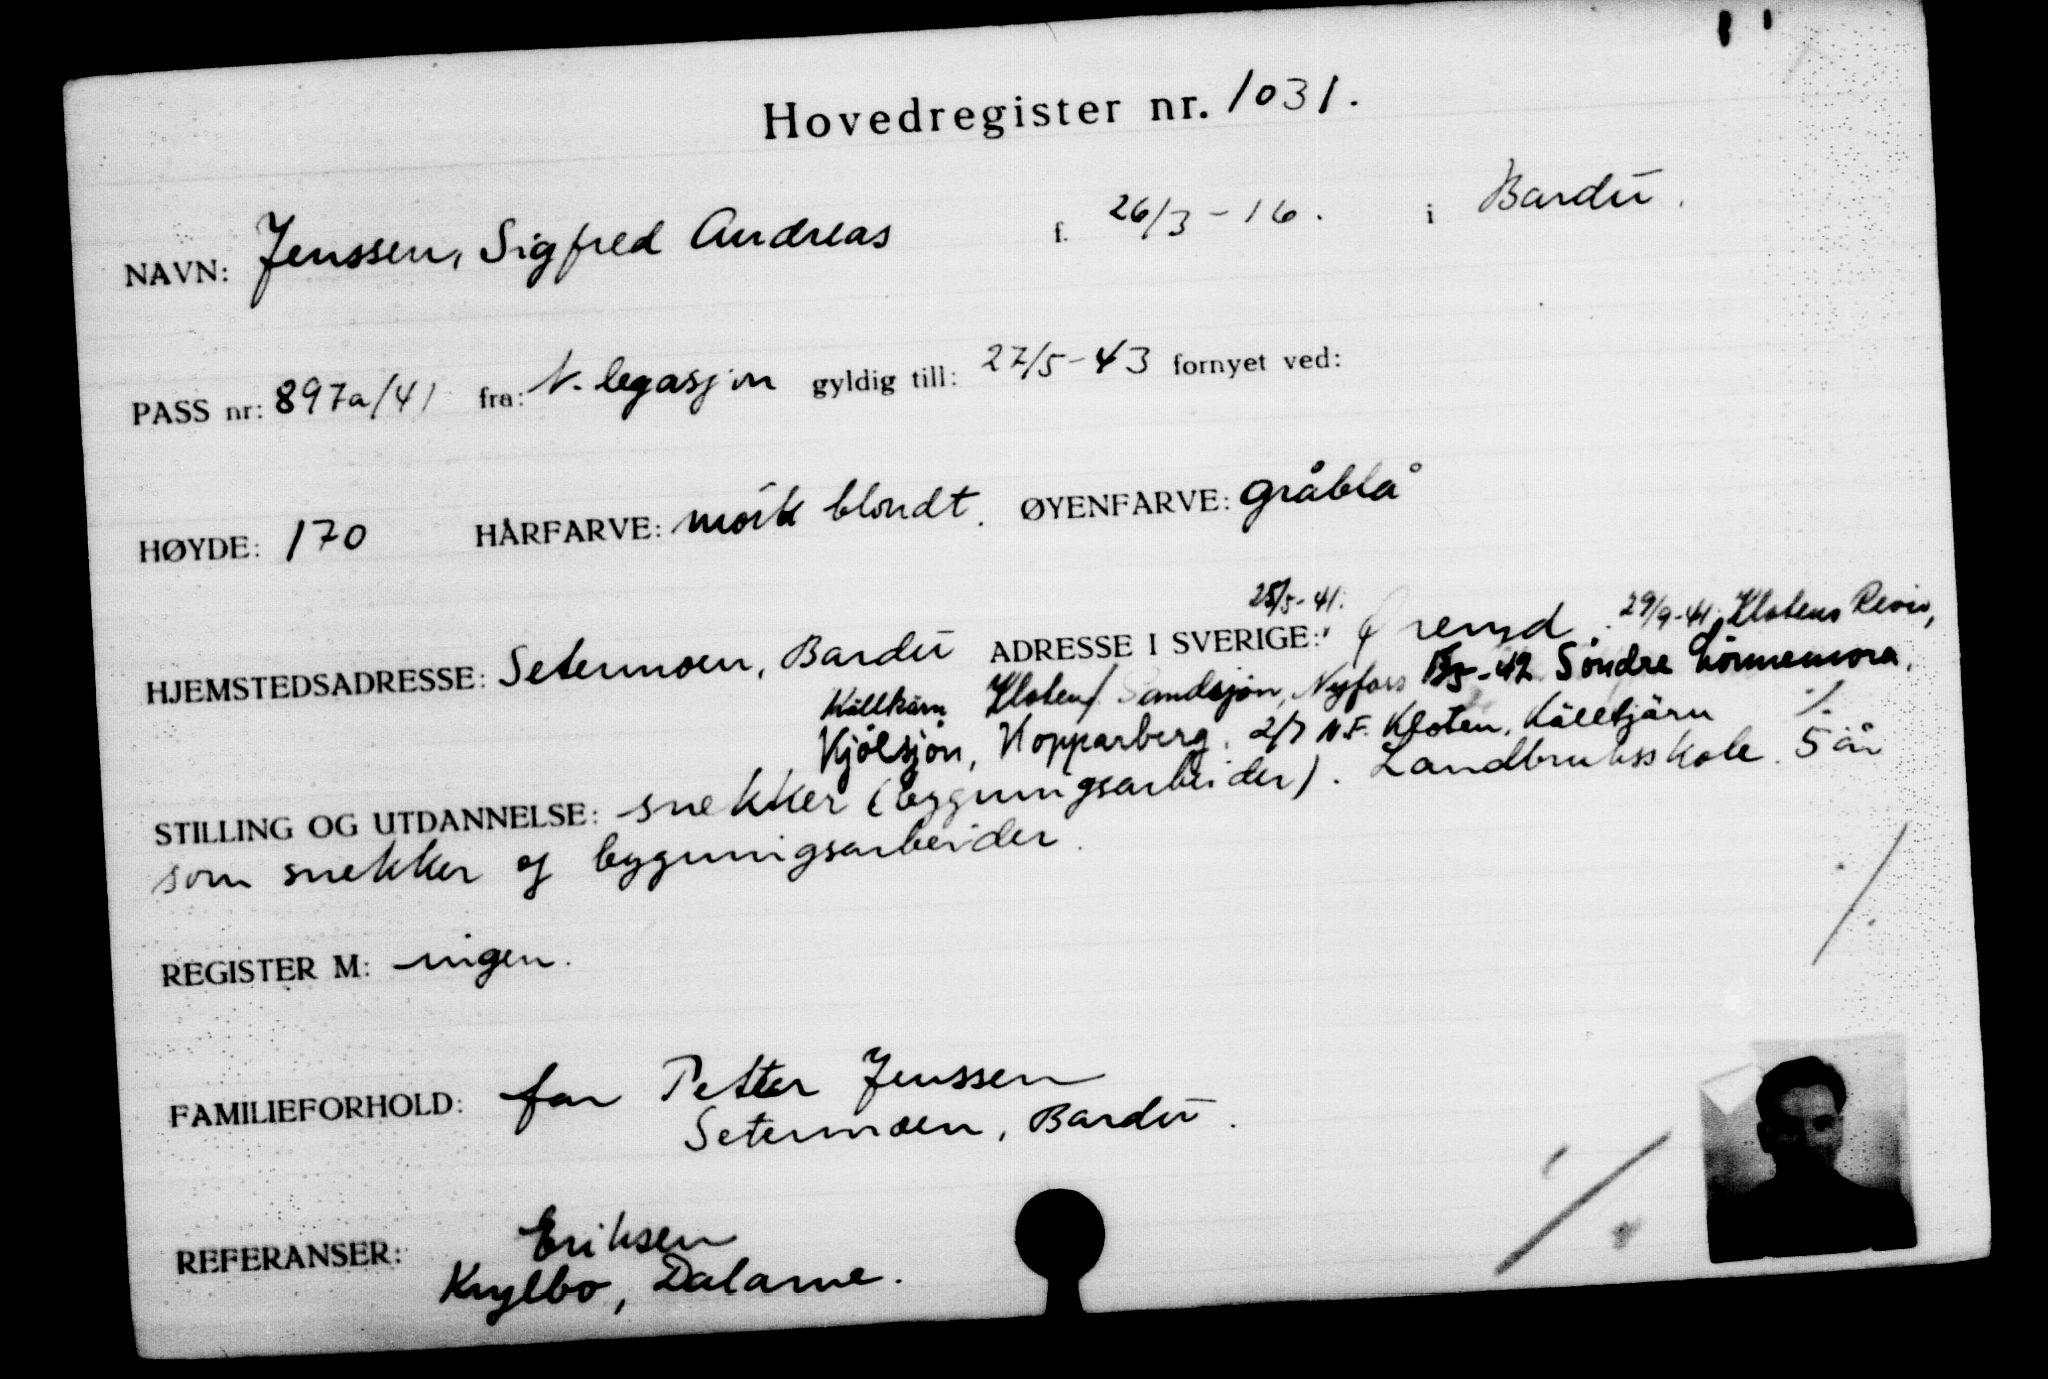 Hovedregister nr. 1031.
NAVN: Jenssen, Sigfred Andreas f. 26/3-16. i Bardū.
PASS nr: 897a/41 fra: N. legasjon gyldig till: 27/5-43 fornyet ved:
HØYDE: 170 HÅRFARVE: mörk blondt. ØYENFARVE: gråblå
25/5-41.
HJEMSTEDSADRESSE: Setermoen, Bardū ADRESSE I SVERIGE: Öreryd. 29/9-41: Klotens Revir,
Källkärn Kloten/ Sandsjön, Nyfors -42 Söndre Lönnemora.
Kjölsjön, Kopparberg. 2/7 N.F. Kloten, Källtjärn %
STILLING OG UTDANNELSE: snekker (bygningsarbeider). Landbruksskole. 5 år
som snekker og bygningsarbeider.
REGISTER M: ingen.
FAMILIEFORHOLD: far Petter Jenssen
Setermoen, Bardū.
REFERANSER: Eriksen
Krylbo, Dalarne.